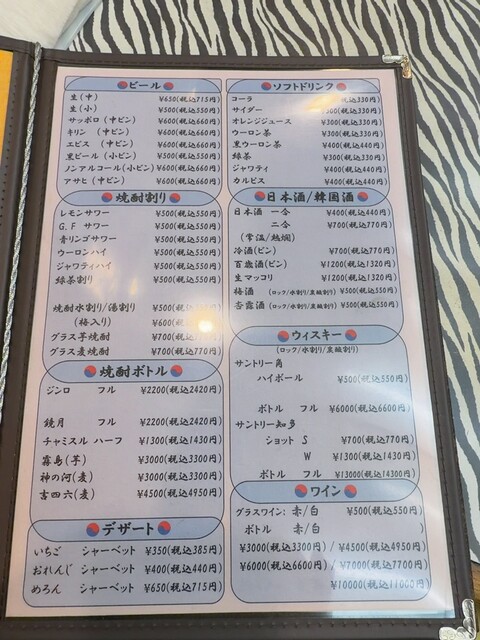 ビール
生(中) ¥650(税込715円)
生(小) ¥500(税込550円)
サッポロ(中ビン) ¥600(税込660円)
キリン (中ビン) ¥600(税込660円)
エビス (中ビン) ¥600(税込660円)
黒ビール(小ビン) ¥500(税込550円)
ノンアルコール(小ビン) ¥600(税込660円)
アサヒ(中ビン) ¥600(税込660円)
焼酎割り
レモンサワー ¥500(税込550円)
G.F サワー ¥500(税込550円)
青リンゴサワー ¥500(税込550円)
ウーロンハイ ¥500(税込550円)
ジャワティハイ ¥500(税込550円)
緑茶割り ¥500(税込550円)
焼酎水割り/湯割り ¥500(税込
(梅入り) ¥600(
グラス芋焼酎 ¥700(税込
グラス麦焼酎 ¥700(税込770円)
焼酎ボトル
ジンロ フル ¥2200(税込2420円)
鏡月 フル ¥2200(税込2420円)
チャミスル ハーフ ¥1300(税込1430円)
霧島(芋) ¥3000(税込3300円)
神の河(麦) ¥3000(税込3300円)
吉四六(麦) ¥4500(税込4950円)
デザート
いちご シャーベット ¥350(税込385円)
おれんじ シャーベット ¥400(税込440円)
めろん シャーベット ¥650(税込715円)
ソフトドリンク
コーラ 税込330円)
サイダー ¥300(税込330円)
オレンジジュース ¥300(税込330円)
ウーロン茶 ¥300(税込330円)
黒ウーロン茶 ¥400(税込440円)
緑茶 ¥300(税込330円)
ジャワティ ¥400(税込440円)
カルピス ¥400(税込440円)
日本酒/韓国酒
日本酒 一合 ¥400(税込440円)
二合 ¥700(税込770円)
(常温/熱燗)
冷酒(ビン) ¥700(税込770円)
百歳酒(ビン) ¥1200(税込1320円)
生マッコリ ¥1200(税込1320円)
梅酒 (ロック/水割り/炭酸割り) ¥500(税込550円)
杏露酒 (ロック/水割り/炭酸割り) ¥500(税込550円)
ウィスキー
(ロック/水割り/炭酸割り)
サントリー角
ハイボール ¥500(税込550円)
ボトル フル ¥6000(税込6600円)
サントリー知多
ショット S ¥700(税込770円)
W ¥1300(税込1430円)
ボトル フル ¥13000(税込14300円)
ワイン
グラスワイン: 赤/白 ¥500(税込550円)
ボトル 赤/白 )
¥3000(税込3300円) / ¥4500(税込4950円)
¥6000(税込6600円) / ¥7000(税込7700円)
¥10000(税込11000円)